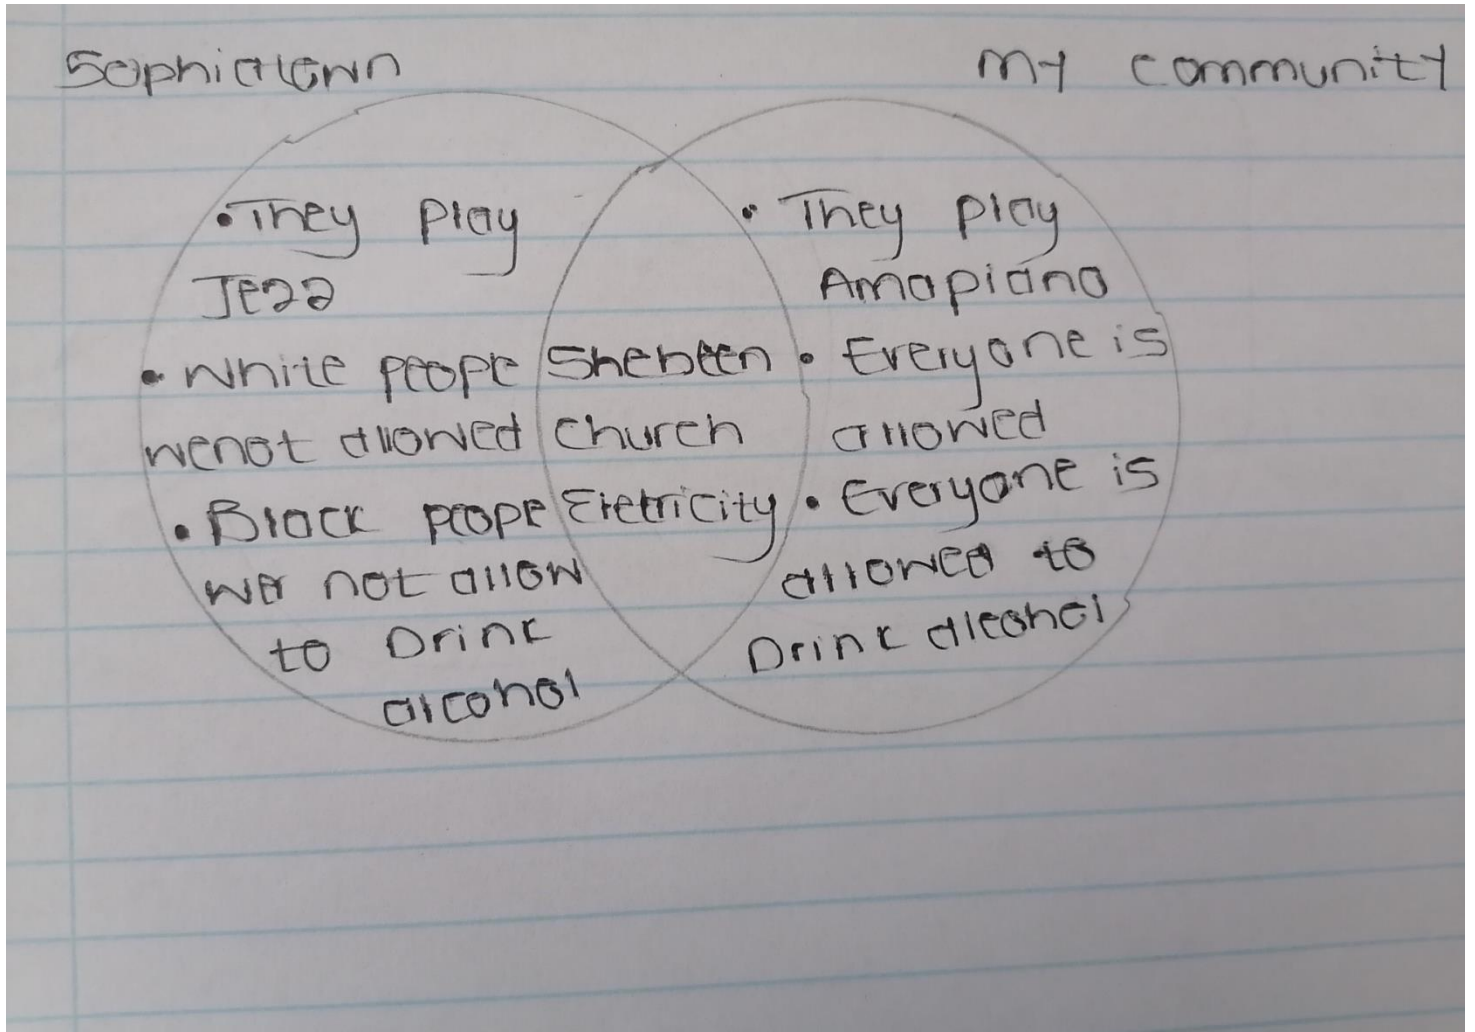 Sophiatown
My community
• They Play
Jezz
• White peope
wenot allowed
• Black peope
wer not allow
to Drink
alcohol
Shebeen
church
Eletricity
• They play
Amapiano
• Everyone is
allowed
• Everyone is
allowed to
Drink alcohol